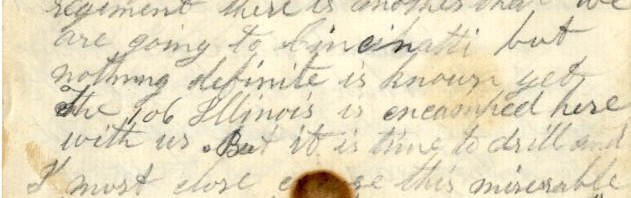 regiment there is another that we
are going to Cincinatti but
nothing definite is known yet
The 106 Illinois is encamped here
with us But it is time to drill and
I must close excuse this miserable